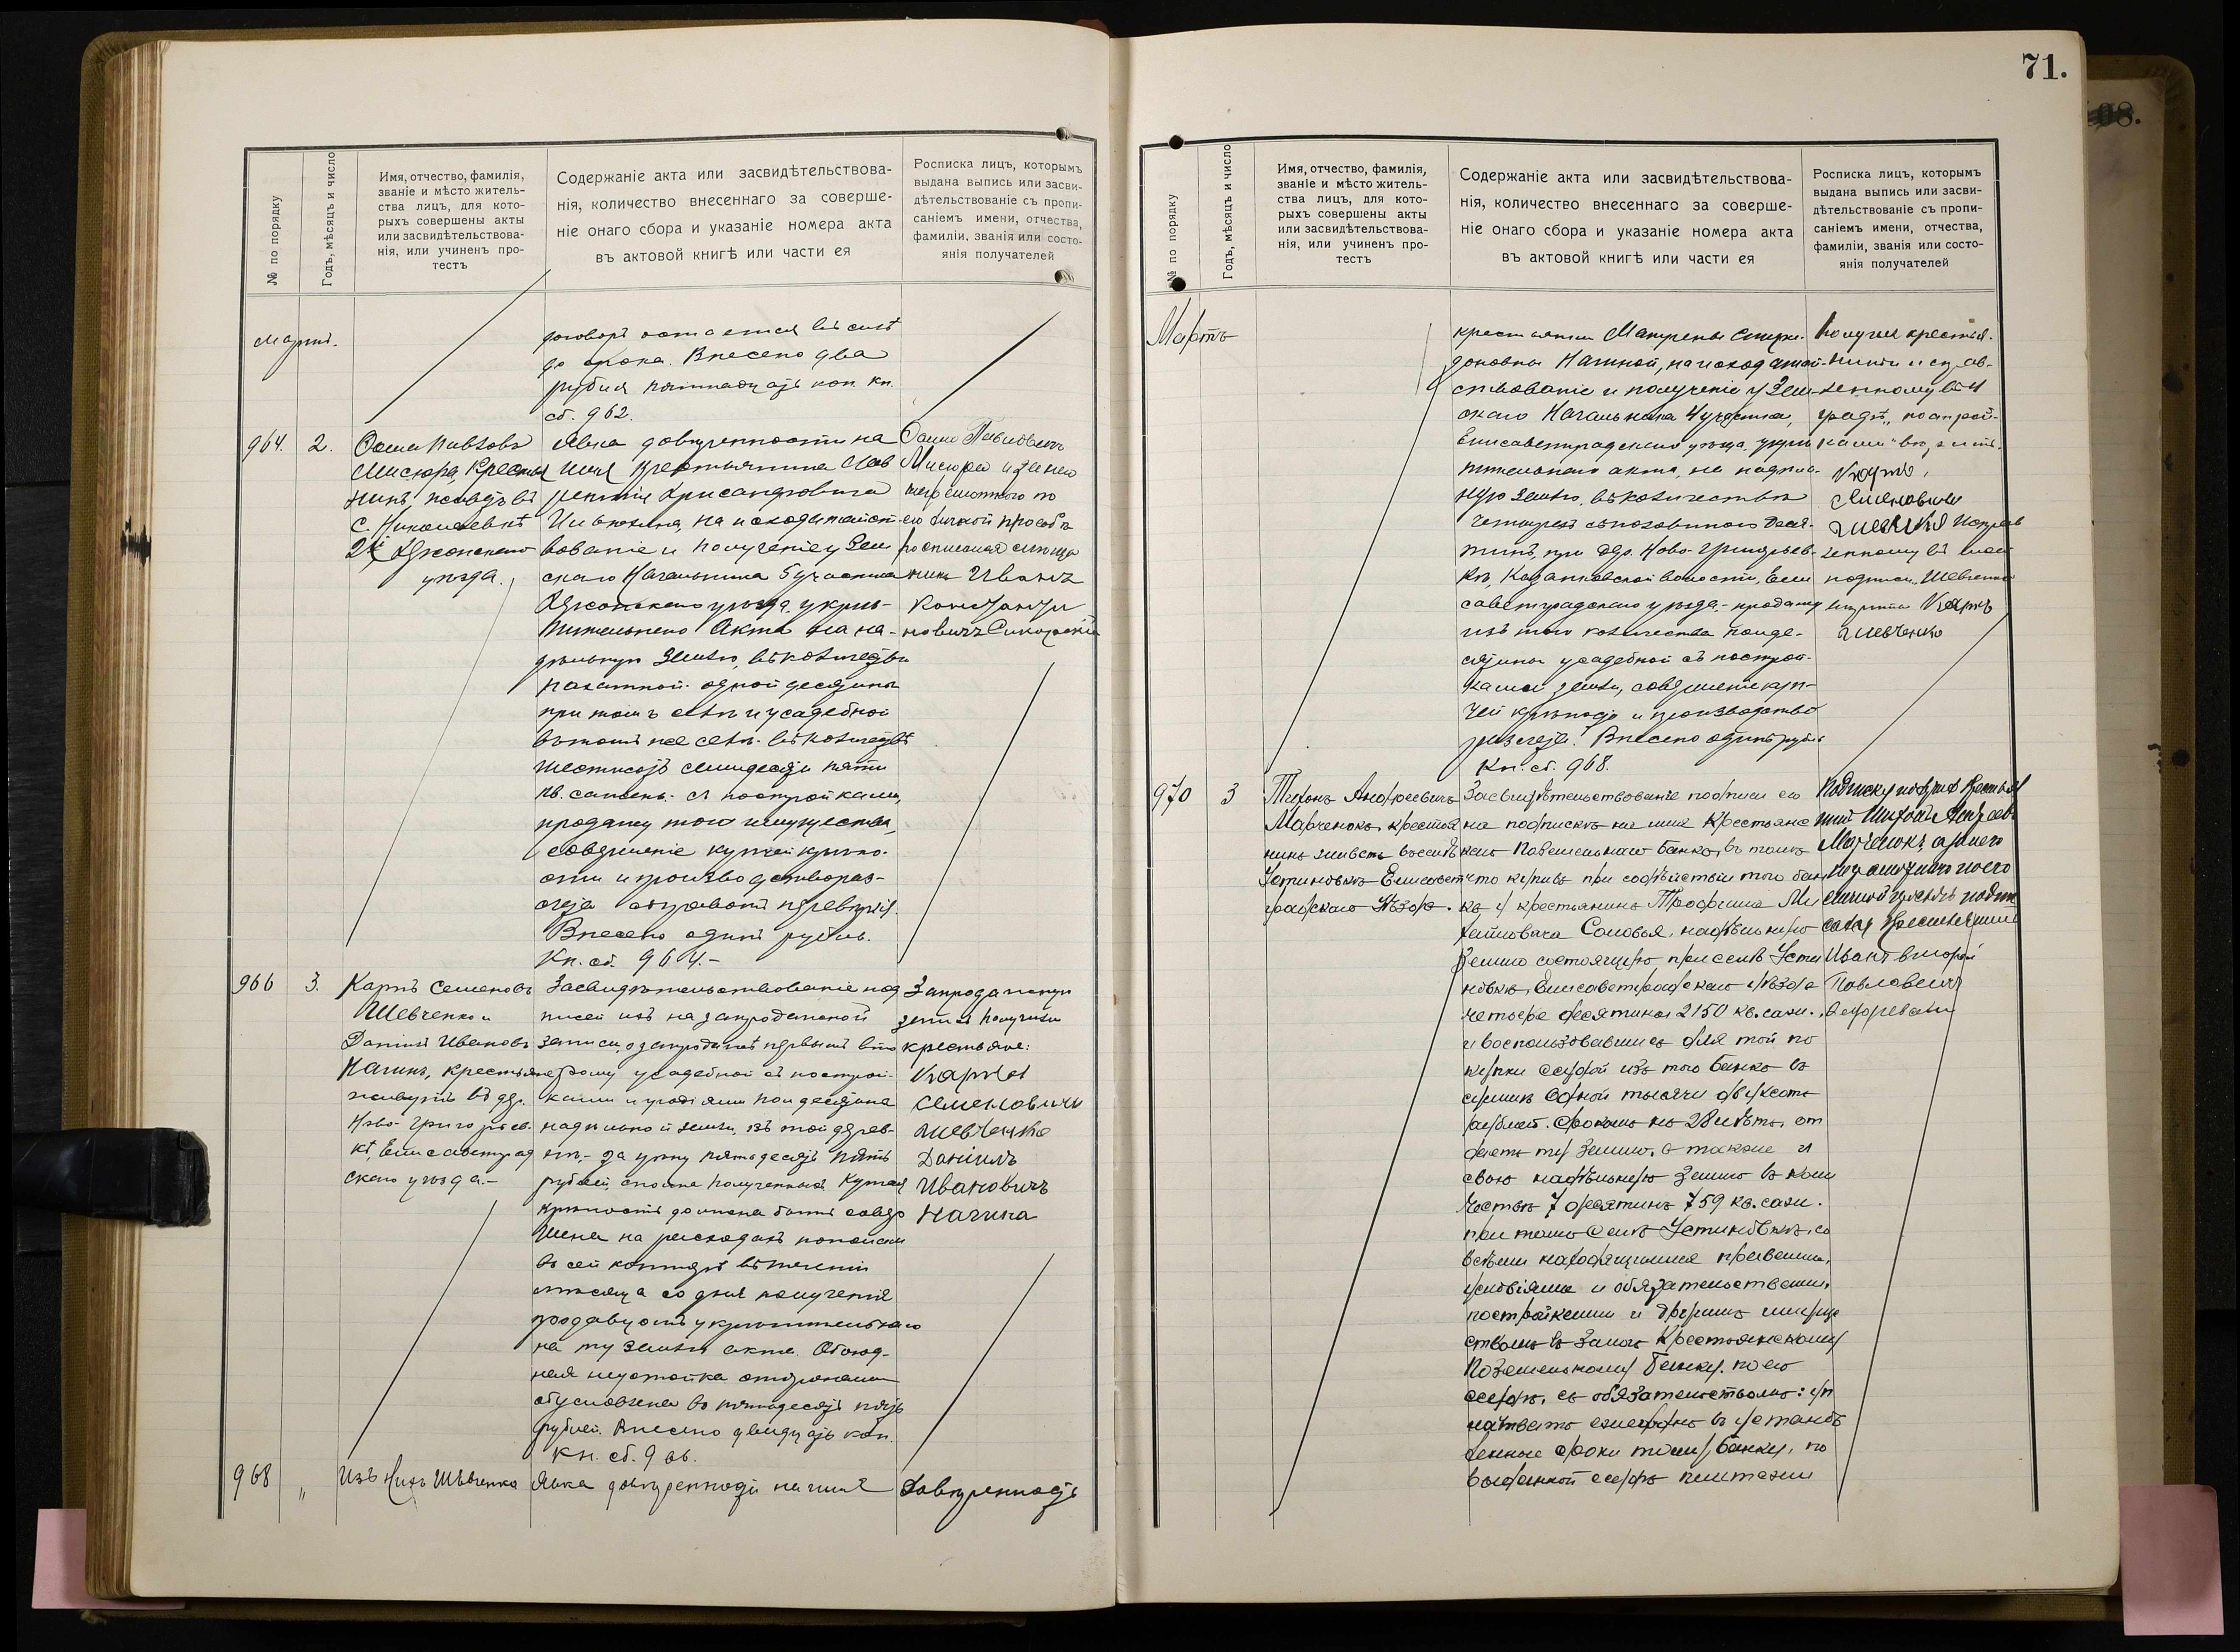 71.
№ по порядку
Годъ, мѣсяцъ и число
Имя, отчество, фамилія,
званіе и мѣсто житель-
ства лицъ, для кото-
рыхъ совершены акты
или засвидѣтельствова-
нія, или учиненъ про-
тестъ
Содержаніе акта или засвидѣтельствова-
нія, количество внесеннаго за соверше-
ніе онаго сбора и указаніе номера акта
въ актовой книгѣ или части ея
Росписка лицъ, которымъ
выдана выпись или засви-
дѣтельствованіе съ пропи-
саніемъ имени, отчества,
фамиліи, званія или состо-
янія получателей
Мартъ.
договоръ остается въ силѣ
до срока. Внесено два
рубля пятнадцать коп. кн.
сб. 962.
964.
2.
Павловъ
Мисюра, Крестья
нинъ, въ
с. Николаевкѣ
2й Херсонскаго
уѣзда.
Явка довѣренности на
имя крестьянина Лав
рентія Хрисанфовича
на ходатайст
вованіе и полученіе у Зем
скаго Начальника 5 участка
Херсонскаго уѣзда укрѣ-
пительнаго Акта на на-
дѣльную землю, въ количествѣ
пахатной одной десятины
при томъ селѣ и усадебной
въ томъ же селѣ въ количествѣ
шестисотъ семидесяти пяти
кв. сажень съ постройками,
продажу того имущества,
совершеніе купчей крѣпо-
сти и производство раз-
счета съ правомъ передовѣрія.
Внесено одинъ рубль.
Кн. сб. 964.-
Павловичъ
Мисюра а за него
неграмотнаго по
его личной просьбѣ
росписался
нинъ Иванъ
Константи
новичъ
966
3.
Карпъ Семеновъ
Шевченко и
Даніилъ Ивановъ
Начина, крестьяне
живутъ въ дер.
Ново-Григорьев-
кѣ, Елисаветград
скаго уѣзда.-
Засвидѣтельствованіе под
писей ихъ на запродажной
записи, о запродажѣ первымъ вто
рому усадебной съ построй-
ками и угодіями пол десятины
надѣльной земли, въ той дерев-
нѣ,- за цѣну пятьдесятъ пять
рублей, сполна полученныхъ Купчая
крѣпость должна быть совер
шена на расходахъ пополам
въ сей конторѣ въ теченіи
мѣсяца со дня полученія
продавцомъ укрѣпительнаго
на ту землю акта. Обоюд-
ная неустойка сторонами
обусловлена въ пятьдесятъ пять
рублей. Внесено двадцать коп.
Кн. сб. 966.
Запродажную
запись получили
крестьяне:
Карпъ
Семеновичъ
Шевченко
Даніилъ
Ивановичъ
Начина
968
„
Изъ нихъ Шевченко
Явка довѣренности на имя
Довѣренность
№ по порядку
Годъ, мѣсяцъ и число
Имя, отчество, фамилія,
званіе и мѣсто житель-
ства лицъ, для кото-
рыхъ совершены акты
или засвидѣтельствова-
нія, или учиненъ про-
тестъ
Содержаніе акта или засвидѣтельствова-
нія, количество внесеннаго за соверше-
ніе онаго сбора и указаніе номера акта
въ актовой книгѣ или части ея
Росписка лицъ, которымъ
выдана выпись или засви-
дѣтельствованіе съ пропи-
саніемъ имени, отчества,
фамиліи, званія или состо-
янія получателей
Мартъ
крестьянки Матрены Спири-
доновны Начиной, на ходатай-
ствованіе и полученіе у Зем-
скаго Начальника 4 участка,
Елисаветградскаго уѣзда укрѣ
пительнаго акта, на надѣль-
ную землю, въ количествѣ
четырехъ съ половиною деся-
тинъ, при дер. Ново-Григорьев-
кѣ, Казанковской волости, Ели
саветградскаго уѣзда,- продажу
изъ того количества полде-
сятины усадебной съ построй-
ками земли, совершеніе куп-
чей крѣпости и производство
разсчета. Внесено одинъ рубль
Кн. сб. 968.
Получил крестья-
нинъ
Карпъ
Семеновичъ
Шевченко
подписи „Шевченко
Карпъ
Шевченко
970
3
Тихонъ Андреевичъ
Марченокъ, крестья
нинъ живетъ въ селѣ
Устиновкѣ Елисавет
градскаго Уѣзда.
Засвидѣтельствованіе подписи его
на подпискѣ на имя Крестьянс
каго Поземельнаго банка, въ томъ
что купивъ при содѣйствіи того бан
ка у крестьянина Трофима Ми
хайловича Соловья, надѣльную
землю состоящую при селѣ Усти
новкѣ, Елисаветградскаго уѣзда
четыре десятины 2150 кв. саж.
и воспользовавшись для той по
купки ссудой изъ того банка въ
суммѣ Одной тысячи двухсотъ
рублей. срокомъ на 28 лѣтъ, от
даетъ ту землю, а также и
свою надѣльную землю въ коли
чествѣ 7 десятинъ 759 кв. саж.
при томъ селѣ Устиновкѣ, со
всѣми находящимися правами,
условіями и обязательствами,
постройками и другимъ имуще
ствомъ въ залогъ Крестьянскому
Поземельному Банку, по его
ссудѣ, съ обязательствомъ: уп
лачивать ежегодно въ установ
ленные сроки тому банку, по
выданной ссудѣ платежи
Подписку получил Крестья
нинъ Тихонъ Андреев
Марченокъ, а за него
неграмотнаго по его
личной просьбѣ подпи
сался Крестьянинъ
Иванъ
Павловичъ